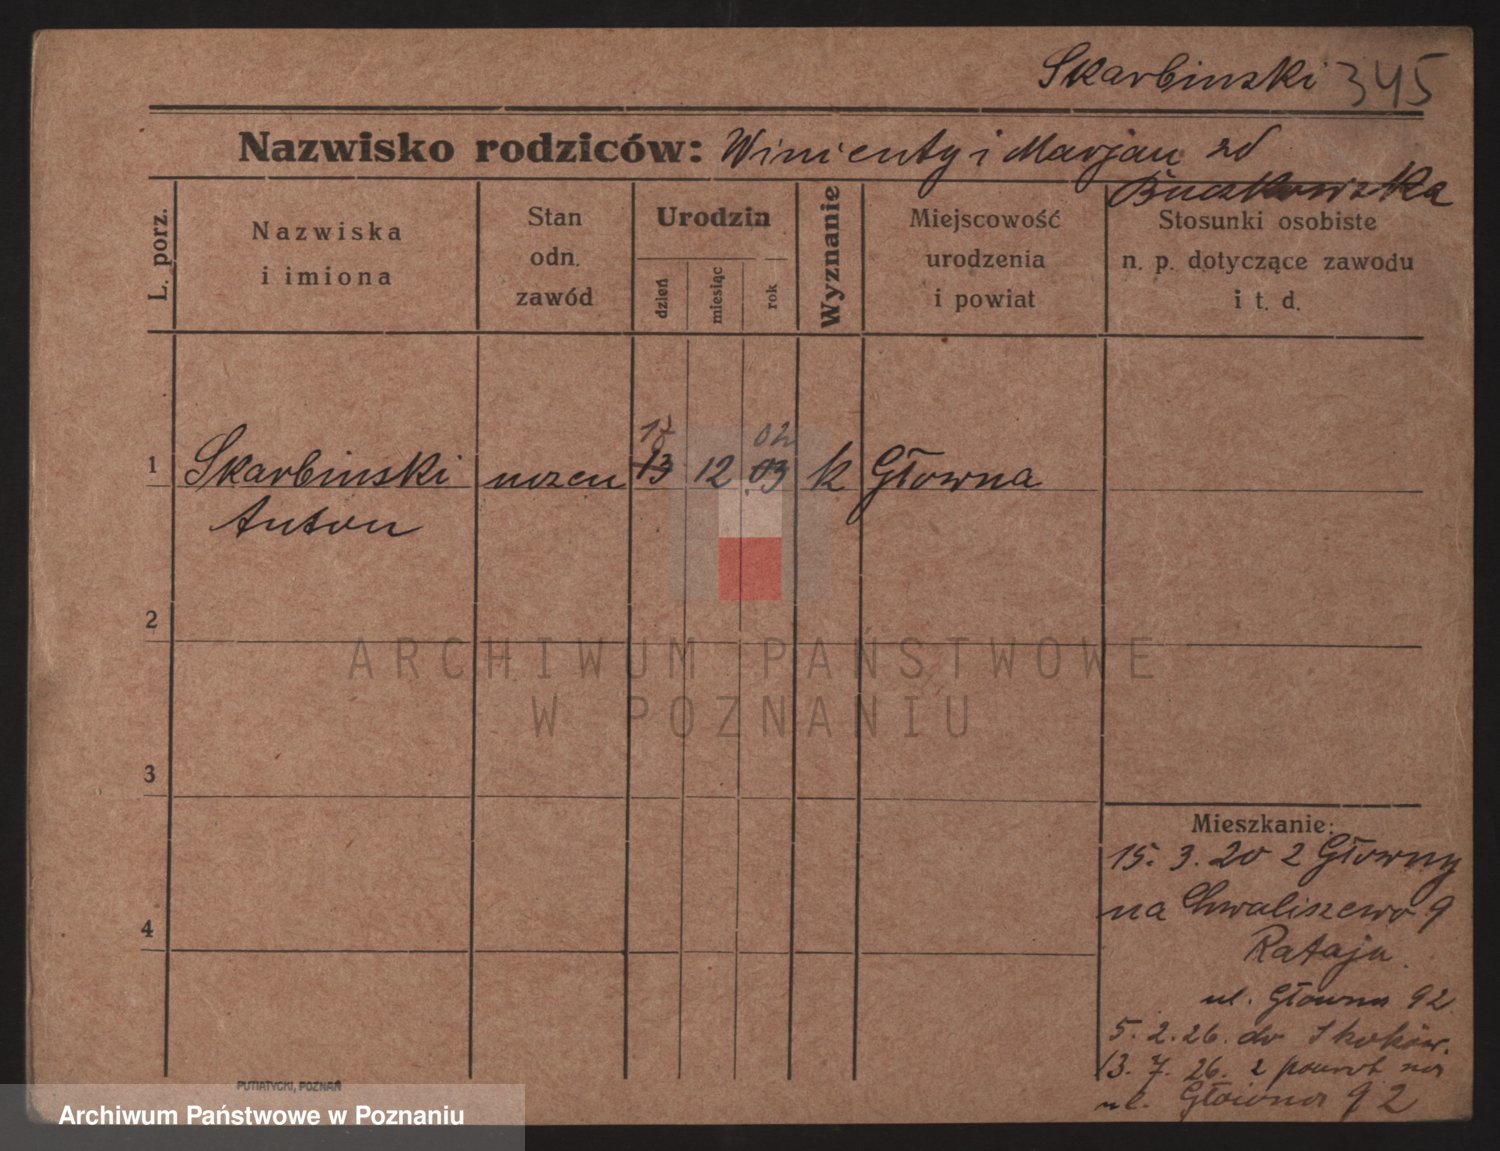 Skarbinski 345
Nazwisko rodziców: Winienty i Marjan zd
Buczkowska
L. porz.
Nazwiska
i imiona
Stan
odn.
zawód
Urodzin
dzień
miesiąc
rok
Wyznanie
Miejscowość
urodzenia
i powiat
Stosunki osobiste
n. p. dotyczące zawodu
i t. d.
17 02
1 Skarbinski uczen 13 12 03 k Głowna
Anton
2
ARCHIWUM PAŃSTWOWE
W POZNANIU
3
Mieszkanie:
15. 3. 20 z Głowny
na Chwaliszewo 9
4
Rataju
ul. Głowna 92
5. 2. 26. do Skoków.
13. 7. 26. z powrot na
ul. Głowna 92
PUTIATYCKI, POZNAŃ
Archiwum Państwowe w Poznaniu